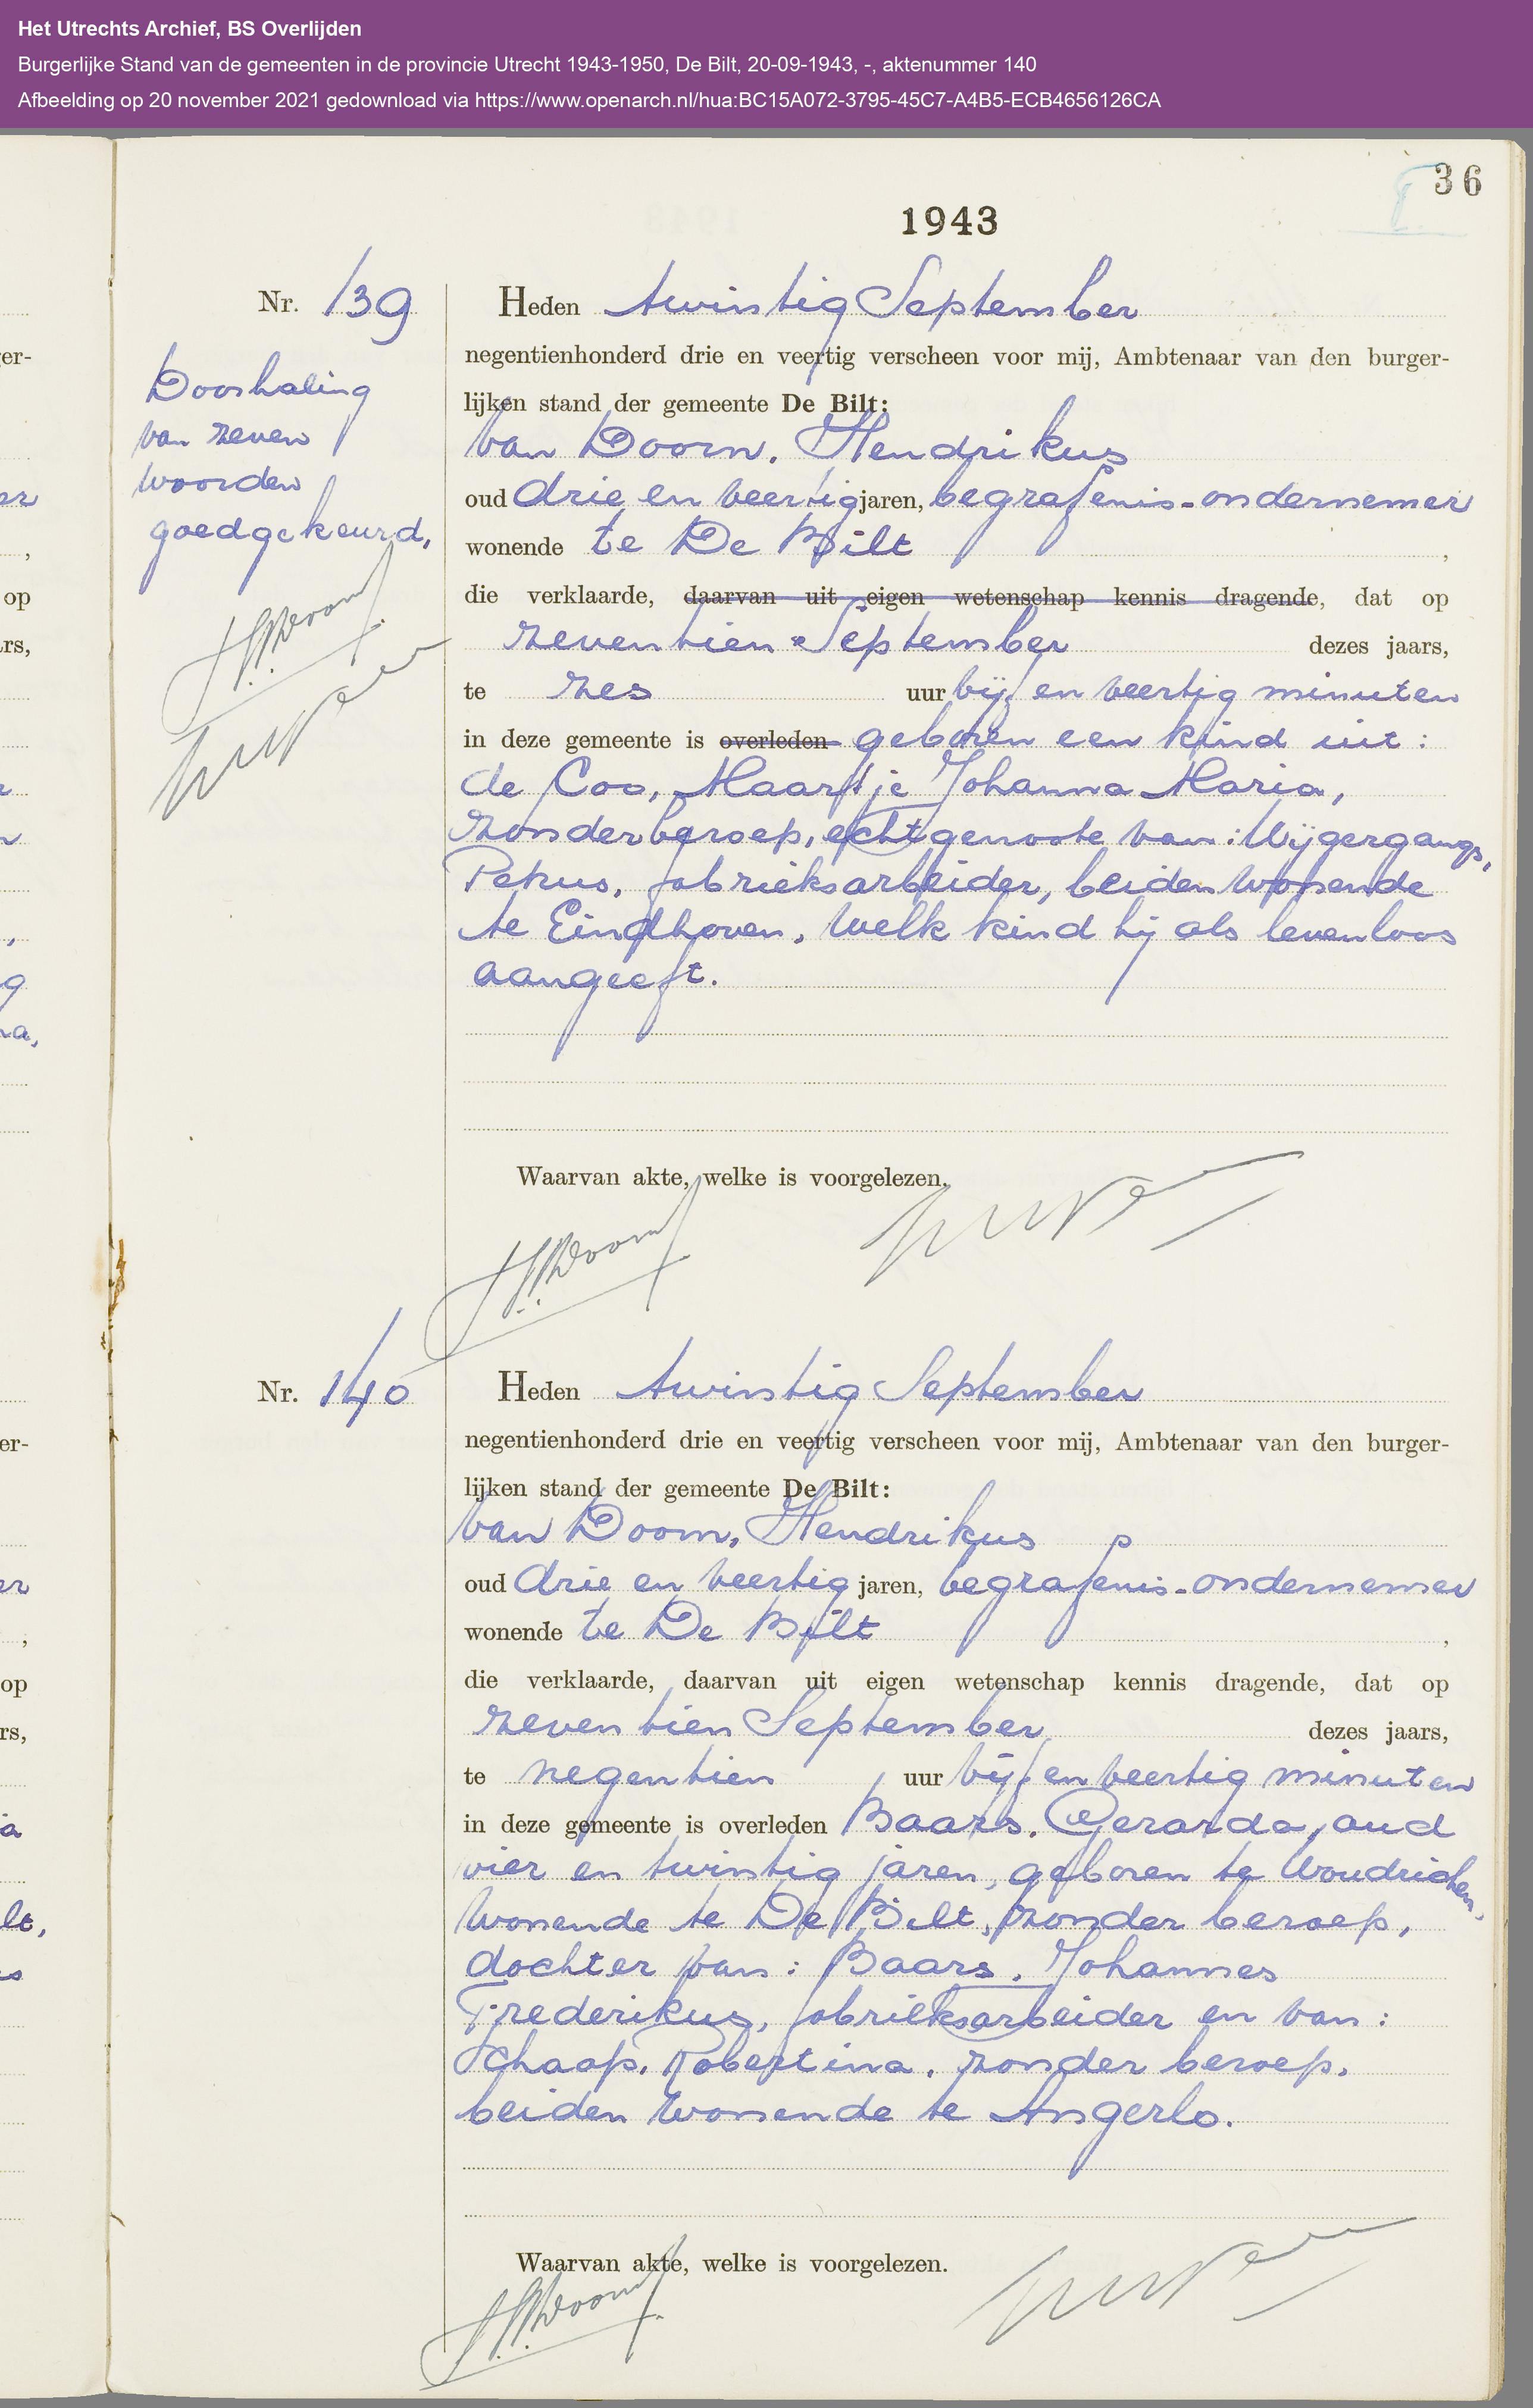 Het Utrechts Archief, BS Overlijden
Burgerlijke Stand van de gemeenten in de provincie Utrecht 1943-1950, De Bilt, 20-09-1943, -, aktenummer 140
Afbeelding op 20 november 2021 gedownload via https://www.openarch.nl/hua:BC15A072-3795-45C7-A4B5-ECB4656126CA
36
1943
Nr. 139
Doorhaling
van zeven
woorden
goedgekeurd,
Heden twintig September
negentienhonderd drie en veertig verscheen voor mij, Ambtenaar van den burger-
lijken stand der gemeente De Bilt:
van Doorn, Hendrikus
oud drie en veertig jaren, begrafenis-ondernemer
wonende te De Bilt ,
die verklaarde, daarvan uit eigen wetenschap kennis dragende, dat op
zeventien September dezes jaars,
te zes uur vijf en veertig minuten
in deze gemeente is overleden geboren een kind uit:
de Coo, Maartje Johanna Maria,
zonder beroep, echtgenoote van: Wijgergangs,
Petrus, fabrieksarbeider, beiden wonende
te Eindhoven, welk kind hij als levenloos
aangeeft.
Waarvan akte, welke is voorgelezen.
Nr. 140
Heden twintig September
negentienhonderd drie en veertig verscheen voor mij, Ambtenaar van den burger-
lijken stand der gemeente De Bilt:
van Doorn, Hendrikus
oud drie en veertig jaren, begrafenis-ondernemer
wonende te De Bilt ,
die verklaarde, daarvan uit eigen wetenschap kennis dragende, dat op
zeventien September dezes jaars,
te negentien uur vijf en veertig minuten
in deze gemeente is overleden Baars, Gerarda, oud
vier en twintig jaren, geboren te Woudrichem,
wonende te De Bilt, zonder beroep,
dochter van: Baars, Johannes
Frederikus, fabrieksarbeider en van:
Schaap, Robertina, zonder beroep,
beiden wonende te Angerlo.
Waarvan akte, welke is voorgelezen.